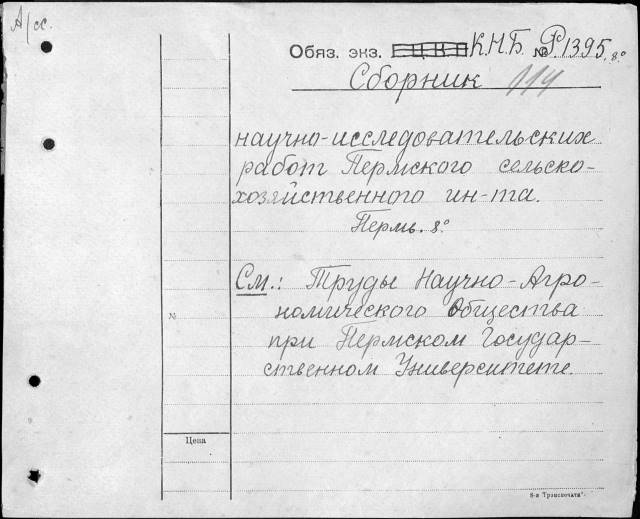 А/сс.
Обяз. экз. К.Н.Б. № Р1395. 8°
Сборник 114
научно-исследовательских
работ Пермского сельско-
хозяйственного ин-та.
Пермь. 8°
См.: Труды Научно-Агро-
номического Общества
при Пермском Государ-
ственном Университете.
№
Цена
8-я "Транспечати".